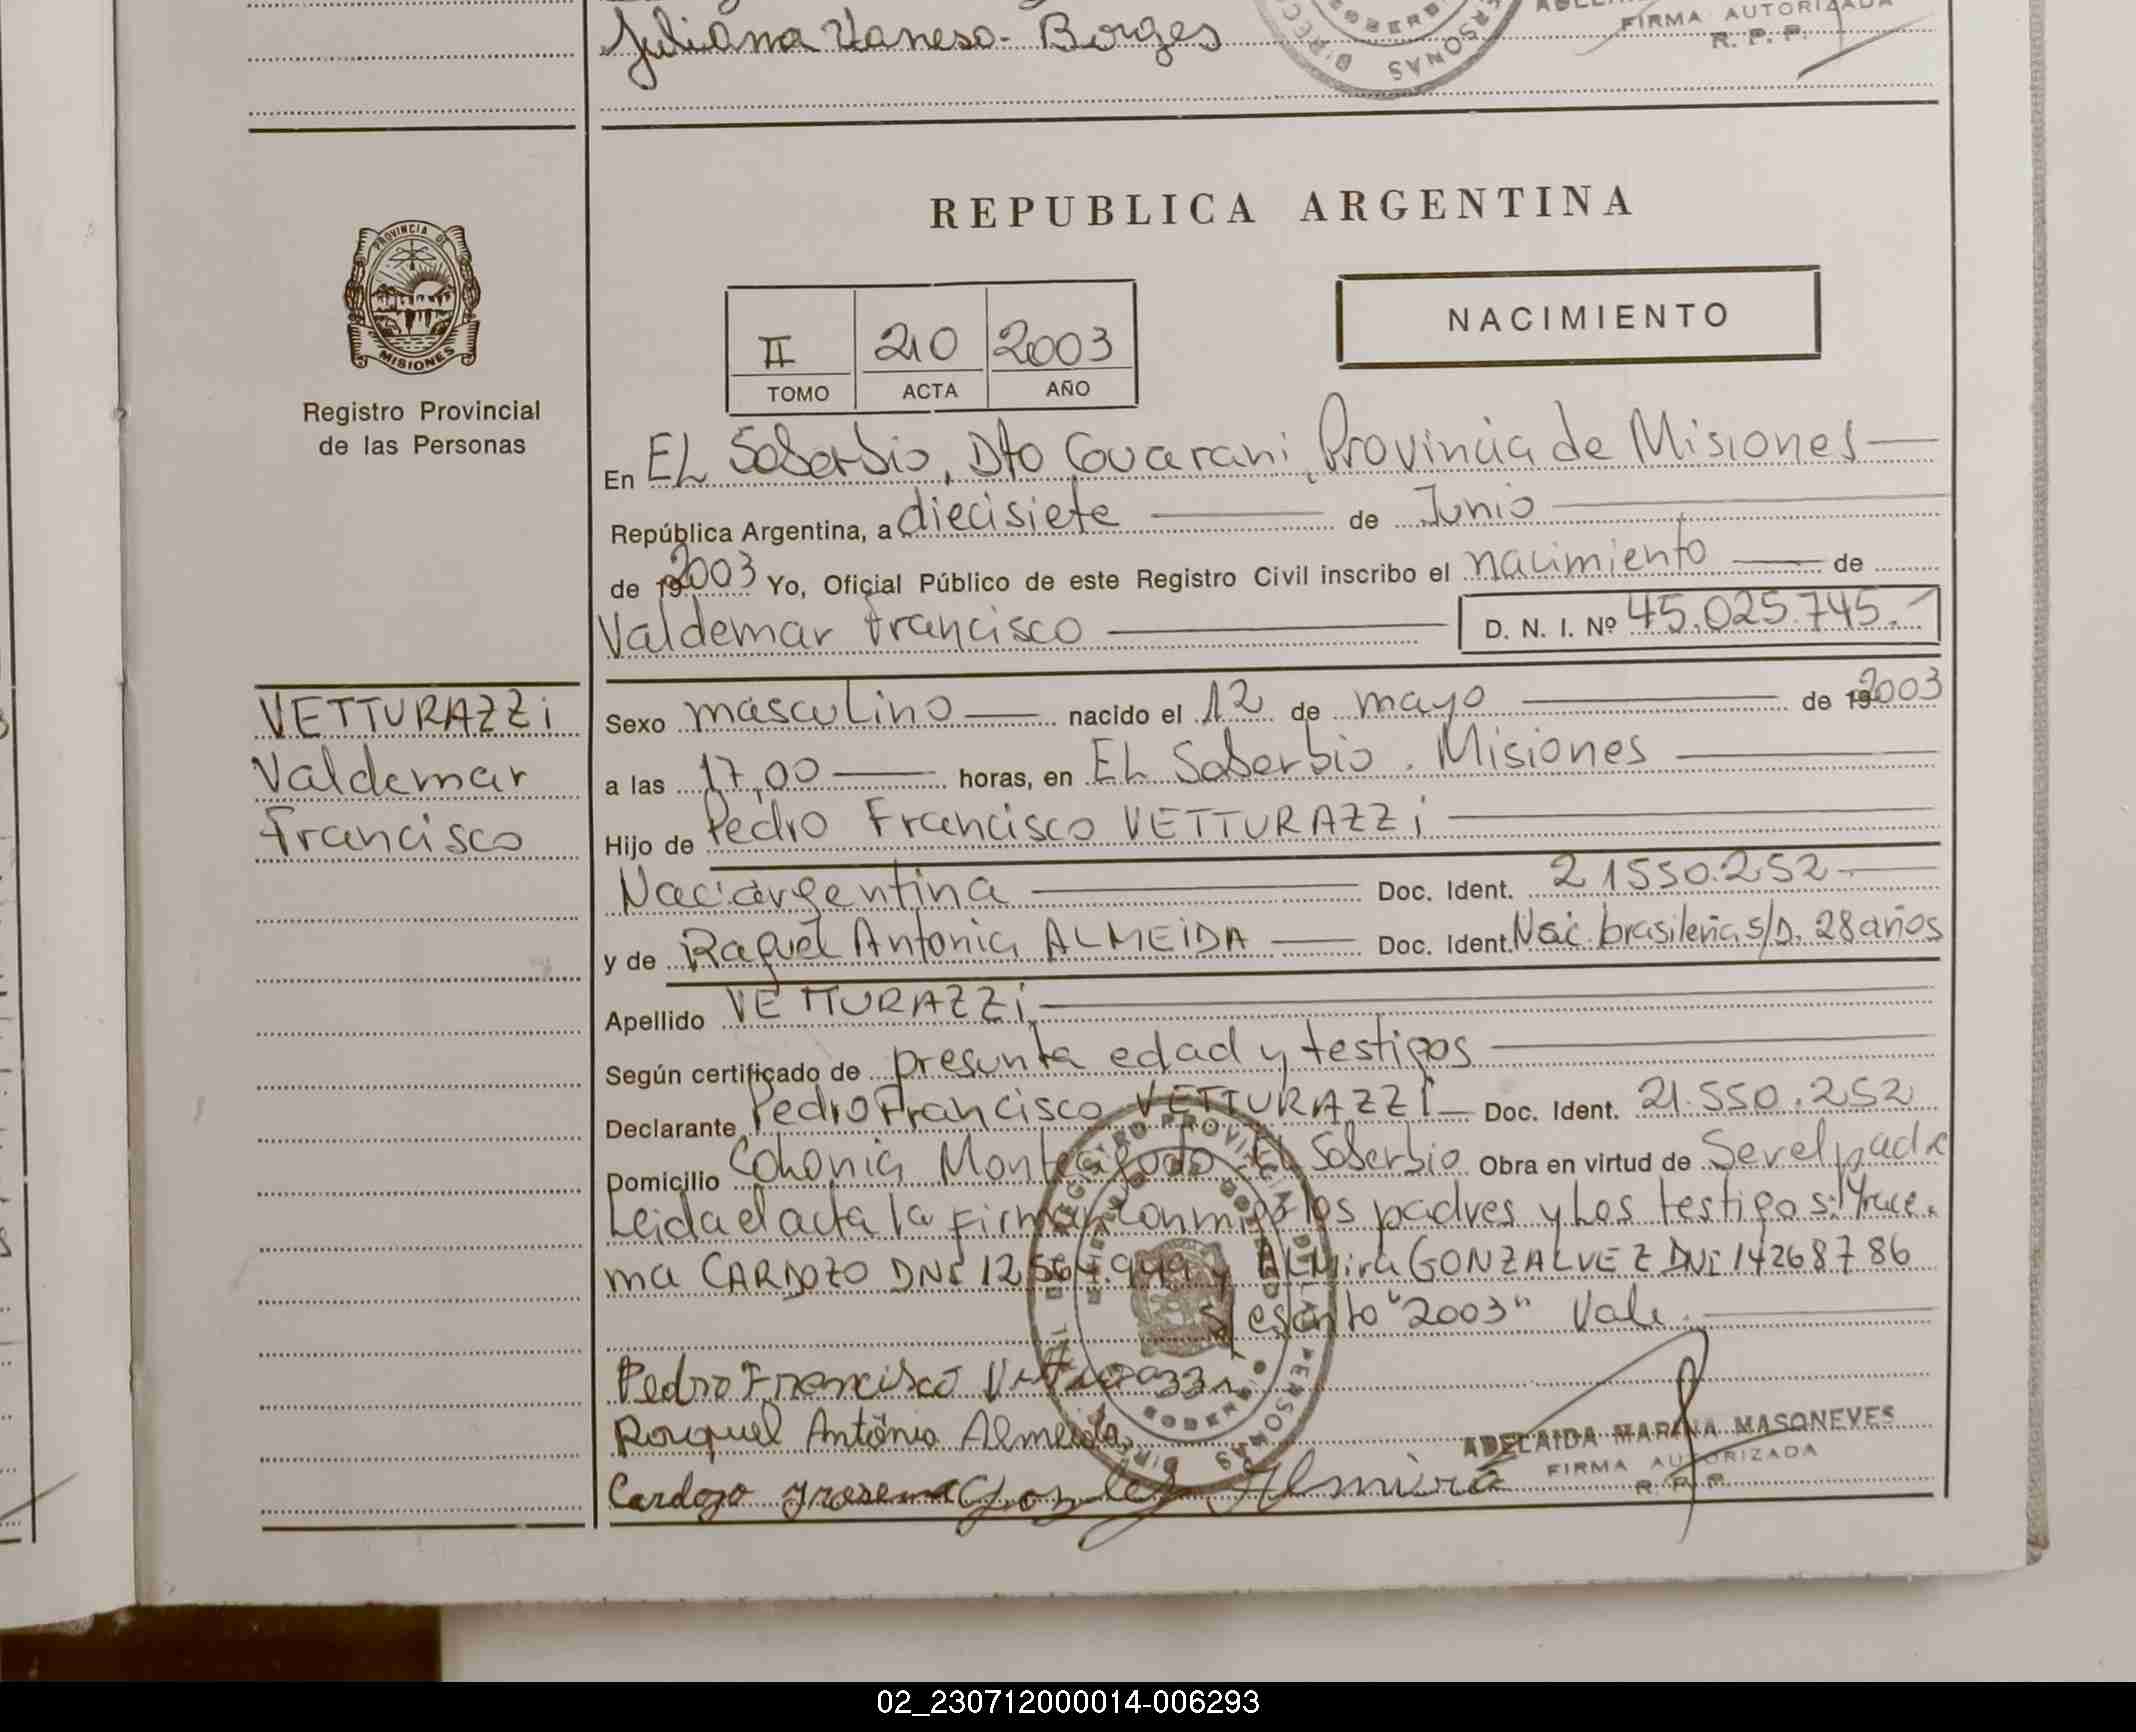 Juliana Vanesa - Borges
FIRMA AUTORIZADA
R. P. P.
PROVINCIA DE
MISIONES
Registro Provincial
de las Personas
REPUBLICA ARGENTINA
II 210 2003
TOMO ACTA AÑO
NACIMIENTO
En EL Soberbio, Dto Guarani, Provincia de Misiones
República Argentina, a diecisiete de Junio
de 19 2003 Yo, Oficial Público de este Registro Civil inscribo el nacimiento de
Valdemar Francisco D. N. I. Nº 45.025.745.
VETTURAZZi
Valdemar
Francisco
Sexo masculino nacido el 12 de mayo de 19 2003
a las 17,00 horas, en EL Soberbio. Misiones
Hijo de Pedro Francisco VETTURAZZi
Nac. argentina Doc. Ident. 21550.252
y de Raquel Antonia ALMEIDA Doc. Ident. Nac. brasileña s/D. 28 años
Apellido VETTURAZZi
Según certificado de presunta edad y testigos
Declarante Pedro Francisco VETTURAZZI Doc. Ident. 21.550.252
Domicilio Colonia Monteagudo EL Soberbio Obra en virtud de Ser el padre
Leida el acta la firman conmigo los padres y Los testigos:
ma CARDOZO DNI 12564.949 y ALMira GONZALVEZ DNI 14268786
s/escrito "2003" Vale.
Pedro Francisco
Raquel Antônia Almeida
Cardozo Almira
ADELAIDA MARINA MASONEVES
FIRMA AUTORIZADA
R. P. P.
02_230712000014-006293